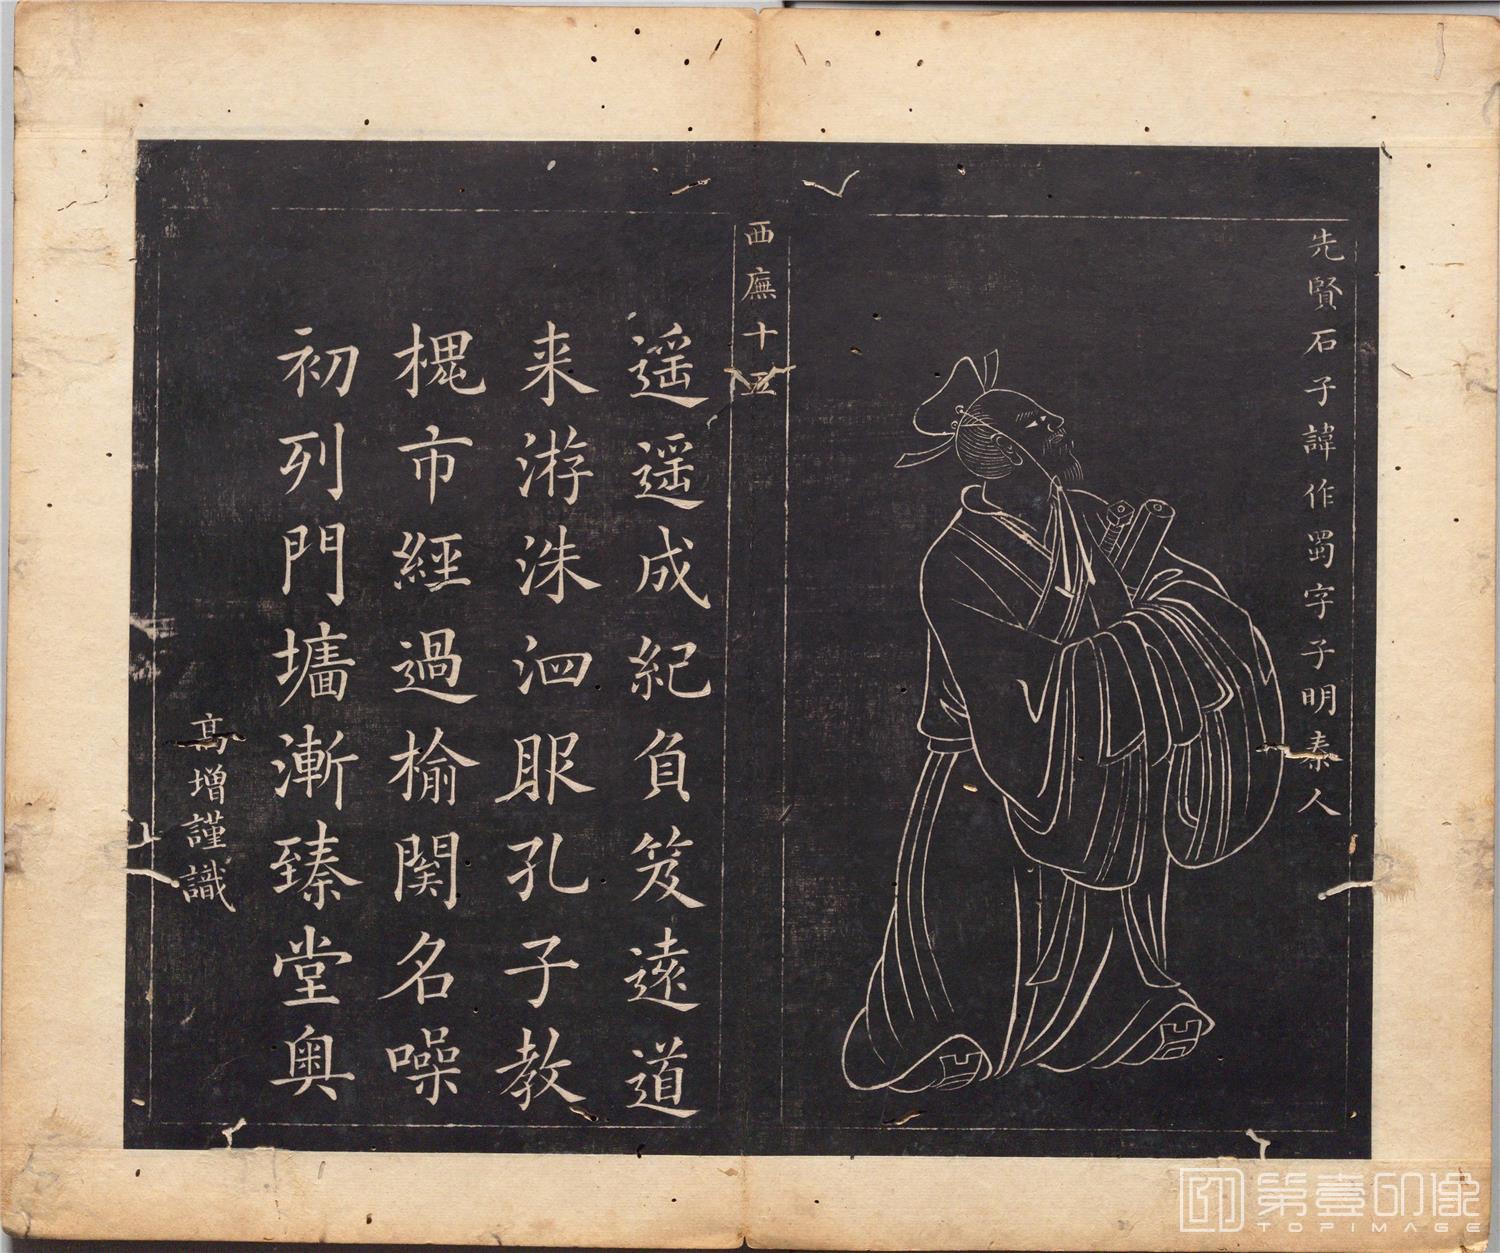 先賢石子諱作蜀字子明秦人
西廡十五
遥遥成紀負笈遠道
来游洙泗服孔子教
槐市經過榆関名噪
初列門墻漸臻堂奥
高增謹識
第壹印像
TOPIMAGE